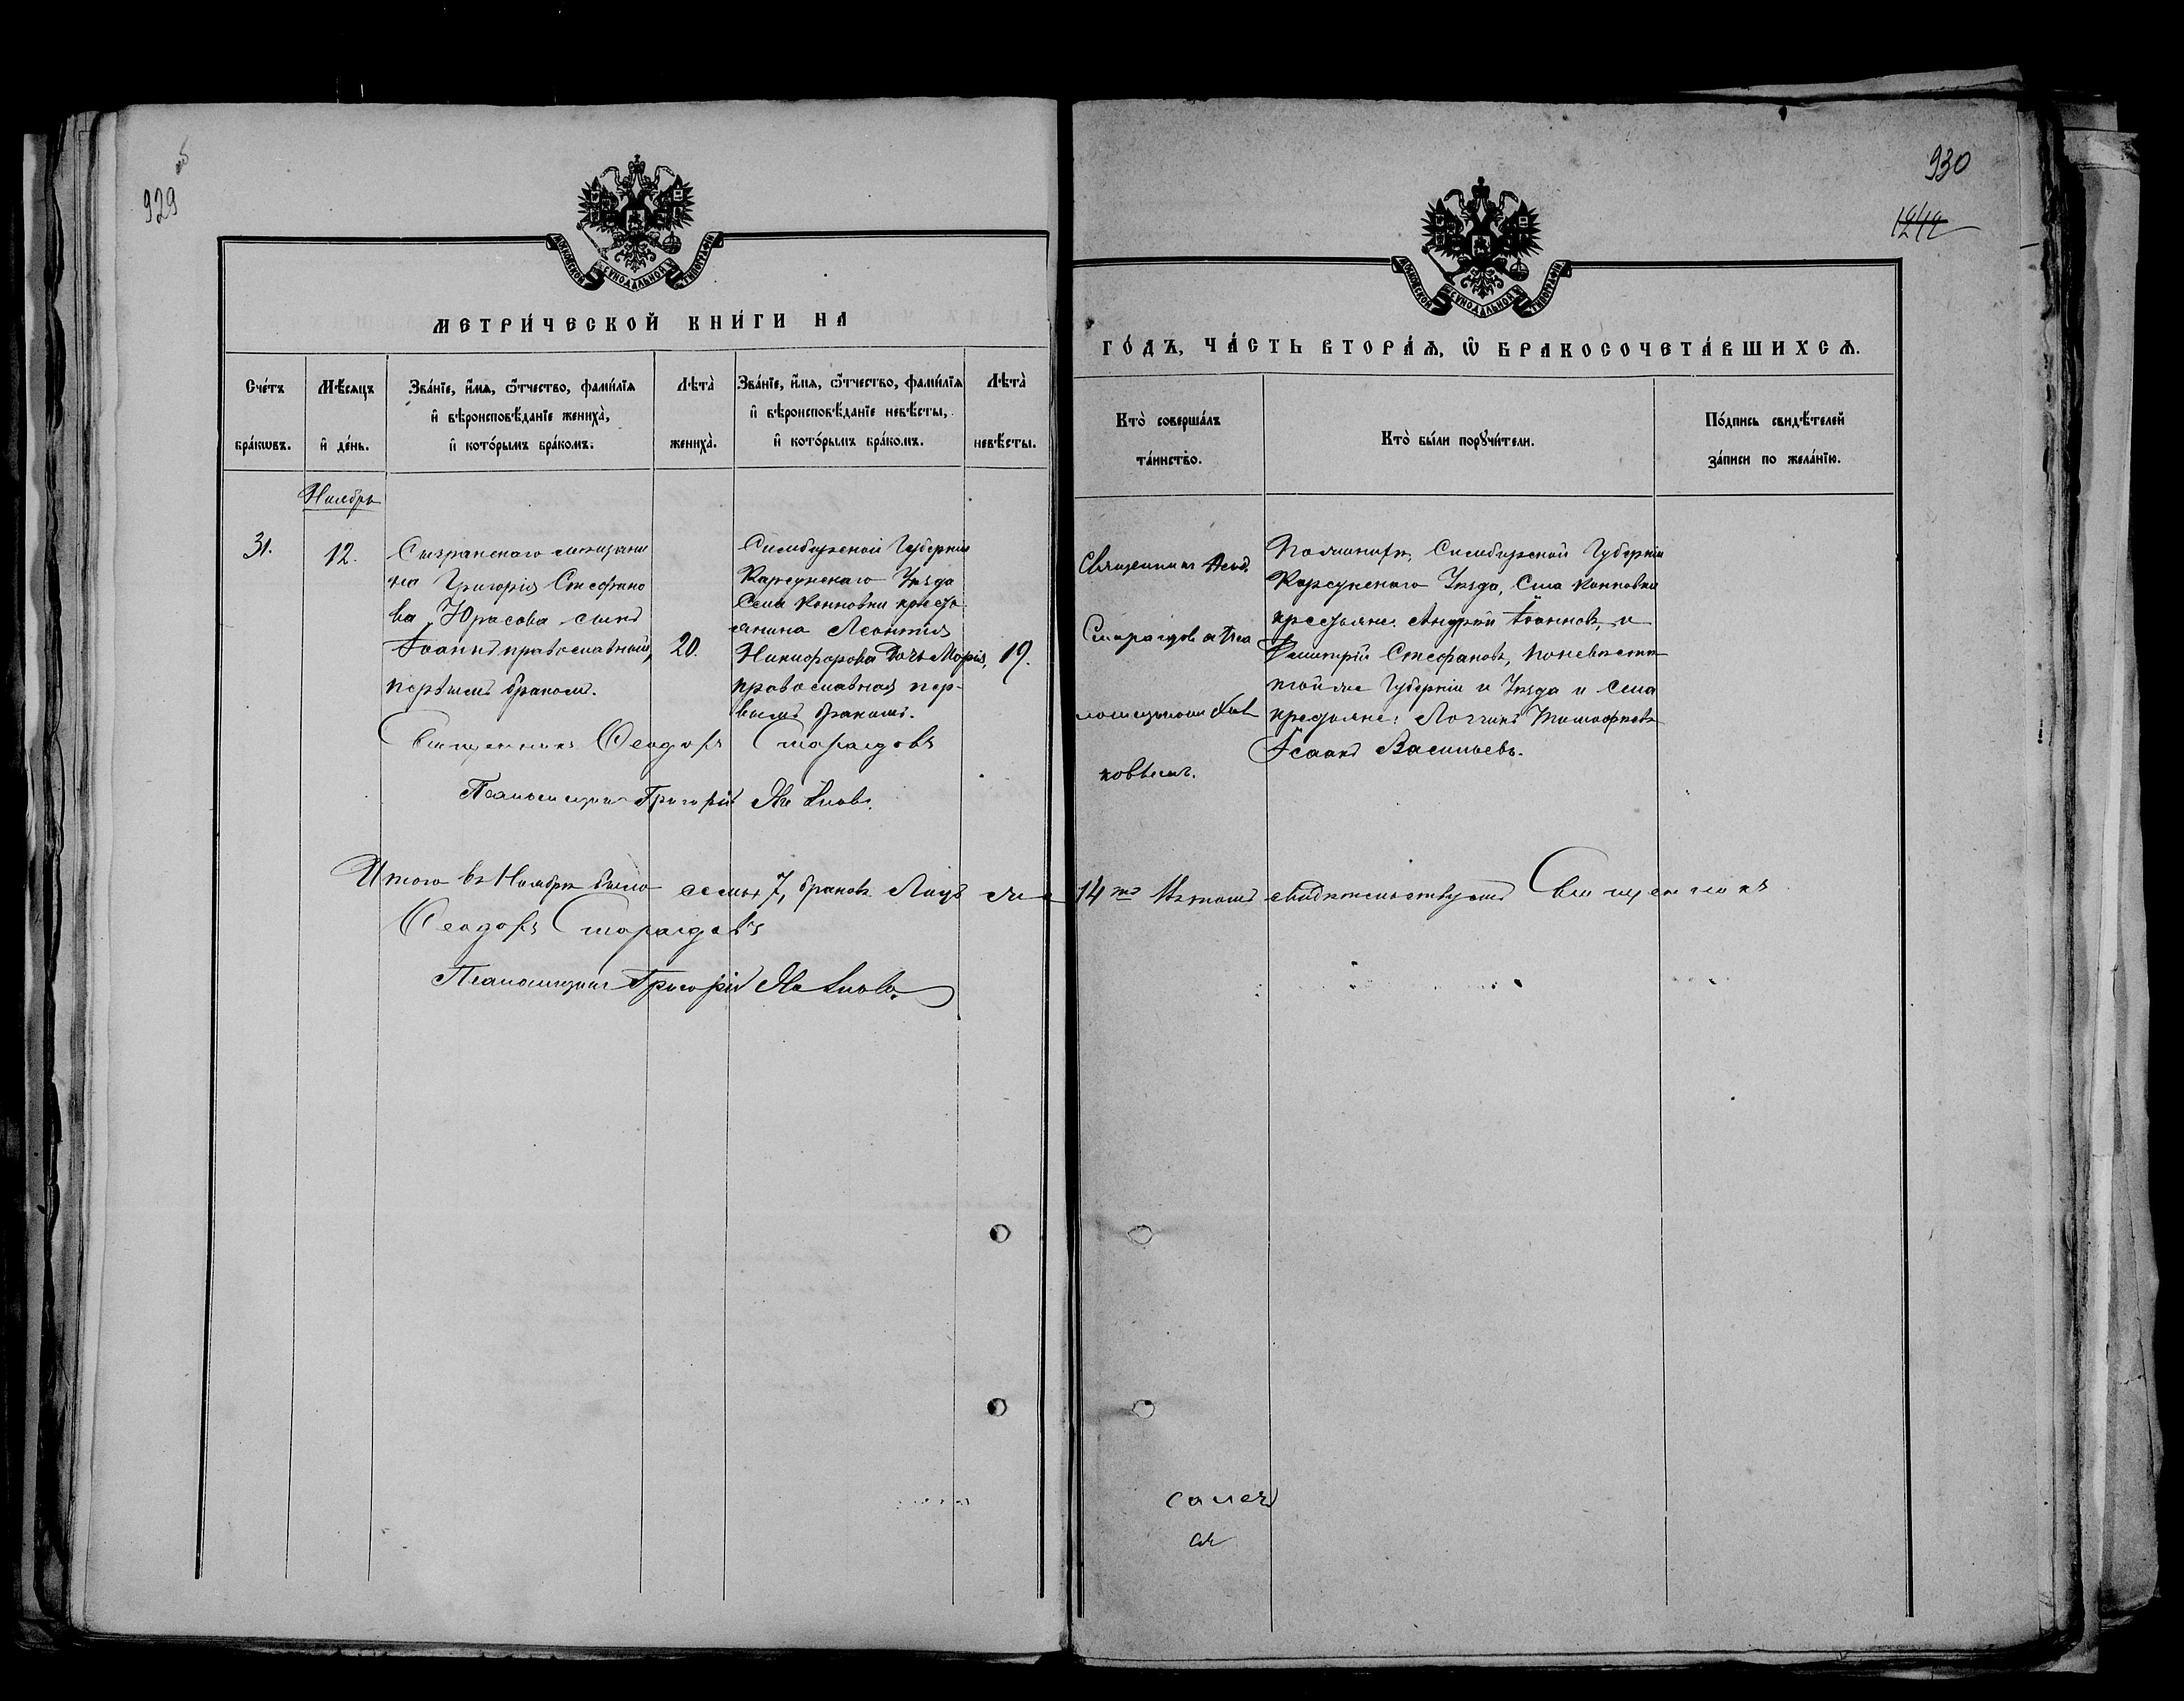 929
930
1242
МОСКОВСКОЙ СѴНОДАЛЬНОЙ ТИПОГРАФІИ
МОСКОВСКОЙ СѴНОДАЛЬНОЙ ТИПОГРАФІИ
МЕТРИ́ЧЕСКОЙ КНИ́ГИ НА
ГО́ДЪ, ЧА́СТЬ ВТОРА́Ѧ, Ѽ БРАКОСОЧЕТА́ВШИХСѦ.
Сче́тъ
бра́кѡвъ.
Мѣ́сяцъ
и҆ де́нь.
Зва́нїе, и҆́мя, ѻ҆́тчество, фами́лїя
и҆ вѣроисповѣ́данїе жениха̀,
и҆ кото́рымъ бра́комъ.
Лѣ́та̀
жениха̀.
Зва́нїе, и҆́мя, ѻ҆́тчество, фами́лїя
и҆ вѣроисповѣ́данїе невѣ́сты,
и҆ кото́рымъ бра́комъ.
Лѣ́та̀
невѣ́сты.
Кто̀ соверша́лъ
та́инство.
Кто̀ бы́ли порꙋчи́тели.
По́дпись свидѣ́телей
за́писи по жела́нїю.
Ноябрь
31.
12.
Сызранскаго мещани
на Григорія Стефано
ва Юрасова сынъ
Іоаннъ православный,
первымъ бракомъ.
20.
Симбирской Губерніи
Карсунскаго Уѣзда
Села Конновки кресть
янина Леонтія
Никифорова дочь Марія,
православная пер-
вымъ бракомъ.
19.
Священникъ Ѳеод.
Смарагдовъ съ Пса
ломщикомъ
По женихѣ, Симбирской Губерніи
Карсунскаго Уѣзда, Села Конновки
крестьяне: Андрей Іоанновъ, и
Димитрій Стефановъ, по невѣстѣ
той же Губерніи и Уѣзда и Села
крестьяне: Логгинъ Тимофѣевъ
Ісаакъ Васильевъ.
Священникъ Ѳеодоръ Смарагдовъ
Псаломщикъ Григорій
Итого въ Ноябрѣ было семь 7, браковъ. Лицъ же 14 ть Въ томъ свидѣтельствуемъ Священникъ
Ѳеодоръ Смарагдовъ
Псаломщикъ Григорій